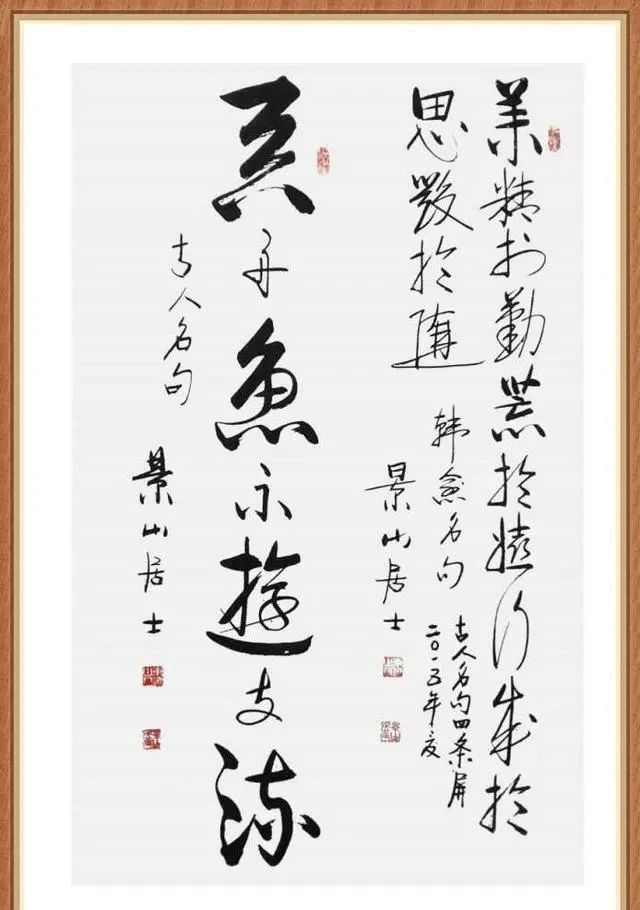 業精於勤荒於嬉行成於
思毀於隨
韩愈名句
景山居士
古人名句四条屏
二〇一五年夏
吞舟魚不遊支流
古人名句
景山居士